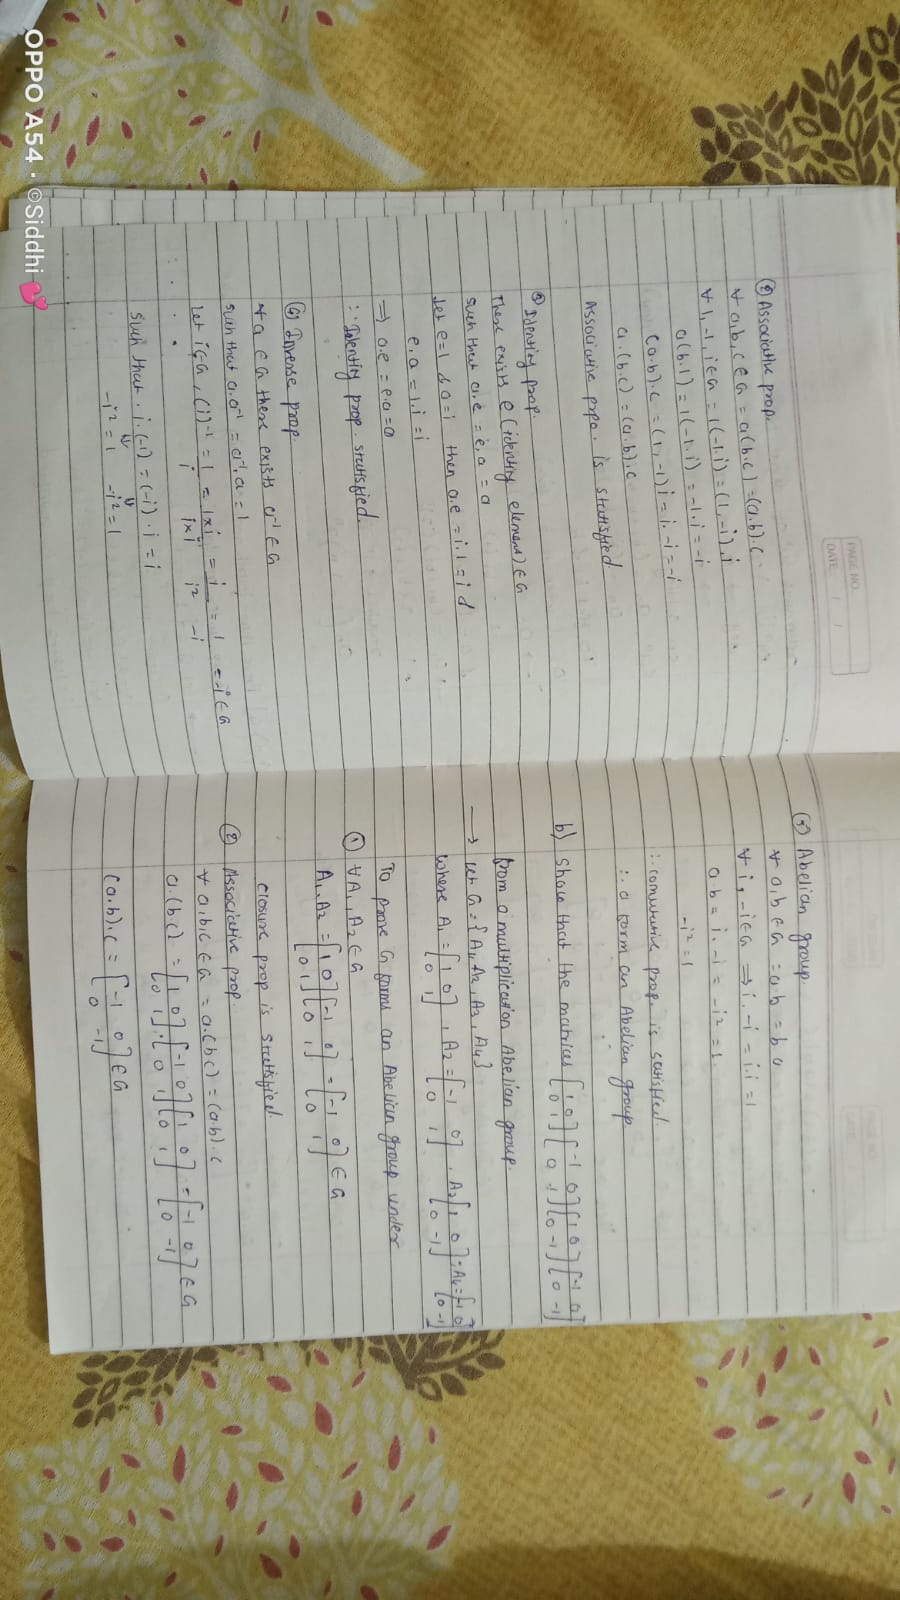 PAGE NO.
DATE: / /
② Associative prop.
∀ a,b,c ∈ G = a(b.c) = (a.b).c
∀ 1,-1,i ∈ G = 1(-1.i) = (1,-i).i
a(b.1) = 1(-1.i) = -1.i = -i
(a.b).c = (1,-1)i = i.-i = -i
a.(b.c) = (a.b).c
Associative prpo. is stattisfied.
③ Identity prop.
There exists e (identity element) ∈ G
such that a.e = e.a = a
Let e=1 & a=i then a.e = i.1 = i &
e.a = 1.i = i
⇒ a.e = e.a = a
∴ Identity prop. stattisfied.
④ Inverse prop.
∀ a ∈ G there exists a⁻¹ ∈ G
such that a.a⁻¹ = a⁻¹.a = 1
Let i ∈ G, (i)⁻¹ = 1/i = 1×i/i×i = i/i² = 1/-i = -i ∈ G
such that . i.(-1) = (-i).i = i
-i² = 1 -i² = 1
PAGE NO.
DATE:
⑤ Abelian group.
∀ a,b ∈ G = a.b = b a
∀ i,-i ∈ G ⇒ i.-i = i.i = 1
a.b = i.-i = -i² = 1.
-i² = 1
∴ comutative prop. is satisfied.
∴ a form an Abelian group.
b) Show that the matrices [1 0; 0 1] [-1 0; 0 1] [1 0; 0 -1] [-1 0; 0 -1]
from a multiplication Abelian group.
→ Let G = {A₁, A₂, A₃, A₄}
where A₁ = [1 0; 0 1], A₂ = [-1 0; 0 1], A₃ [1 0; 0 -1]; A₄ = [-1 0; 0 -1]
To prove G forms an Abelian group under
① ∀ A₁, A₂ ∈ G
A₁.A₂ = [1 0; 0 1] [-1 0; 0 1] = [-1 0; 0 1] ∈ G
closure prop is stattisfied.
② Associative prop.
∀ a,b,c ∈ G = a.(bc) = (a.b).c
a.(b.c) = [1 0; 0 1].[-1 0; 0 1] [1 0; 0 1] = [-1 0; 0 -1] ∈ G
(a.b).c = [-1 0; 0 -1] ∈ G
OPPO A54 · ©Siddhi 💕